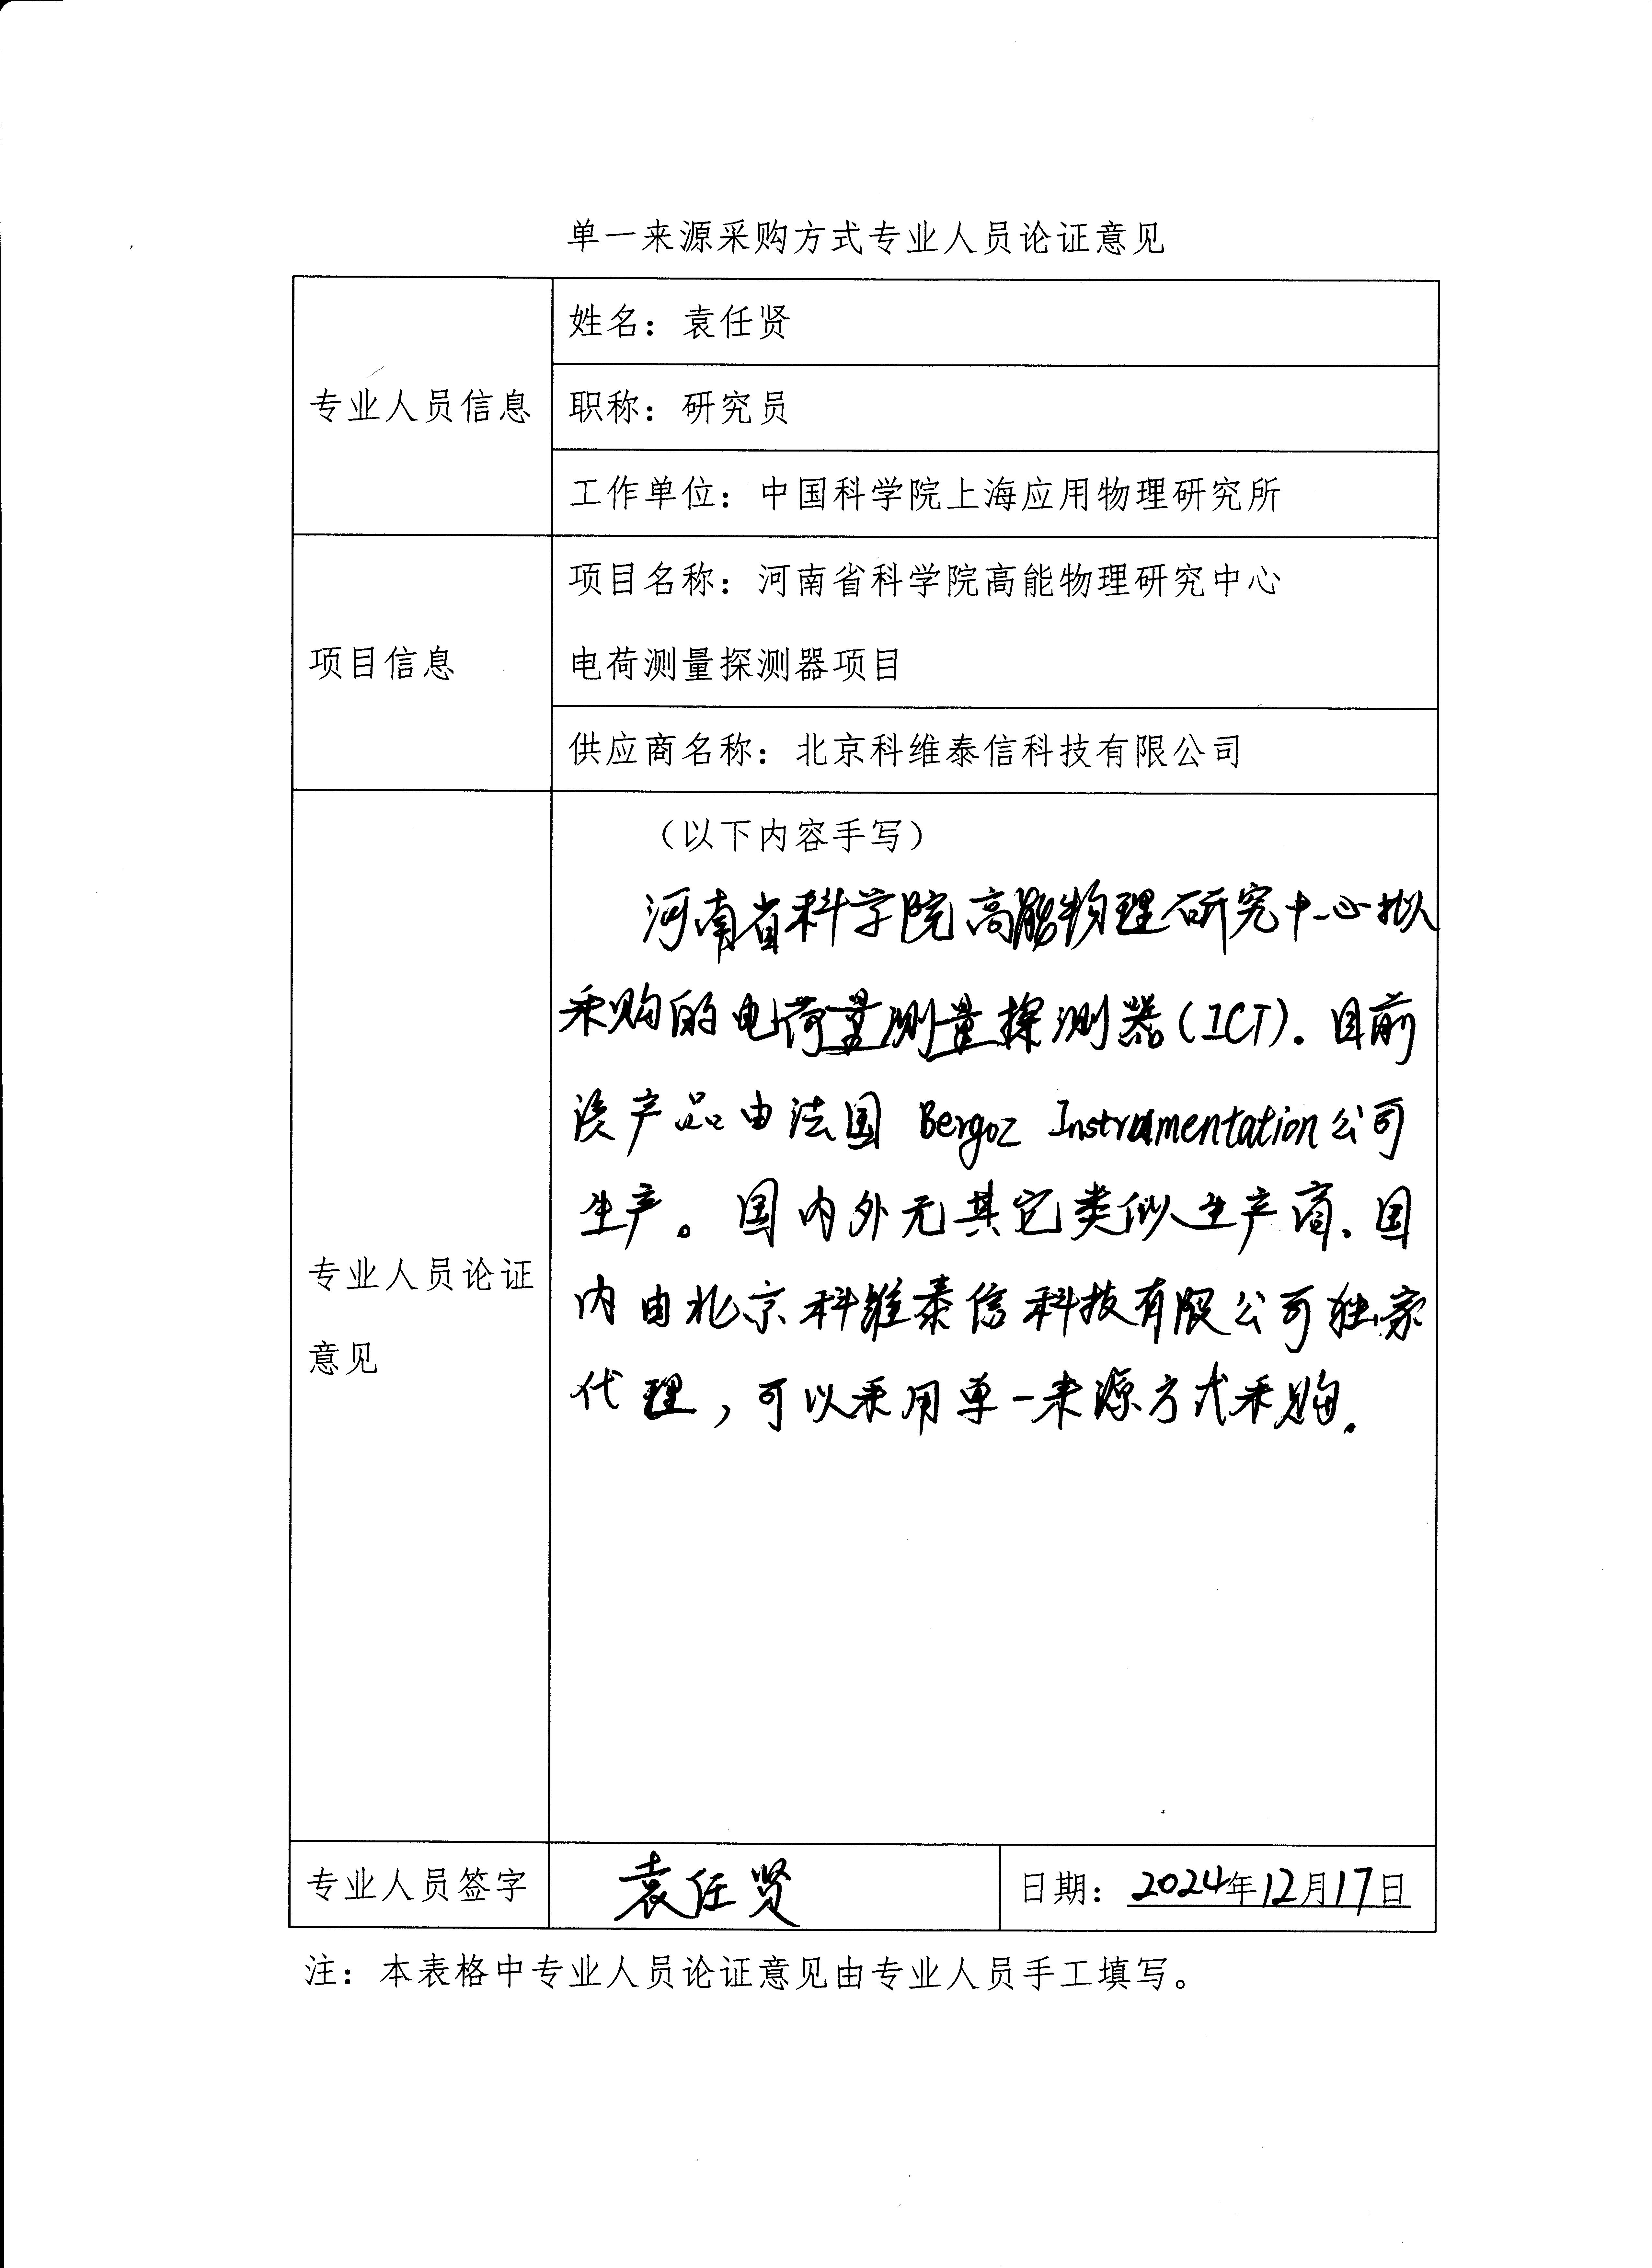 单一来源采购方式专业人员论证意见
专业人员信息
姓名：袁任贤
职称：研究员
工作单位：中国科学院上海应用物理研究所
项目信息
项目名称：河南省科学院高能物理研究中心
电荷测量探测器项目
供应商名称：北京科维泰信科技有限公司
专业人员论证
意见
（以下内容手写）
河南省科学院高能物理研究中心拟
采购的电荷量测量探测器(ICT)。目前
该产品由法国 Bergoz Instrumentation公司
生产。国内外无其它类似生产商、国
内由北京科维泰信科技有限公司独家
代理，可以采用单一来源方式采购。
专业人员签字
袁任贤
日期：2024年12月17日
注：本表格中专业人员论证意见由专业人员手工填写。